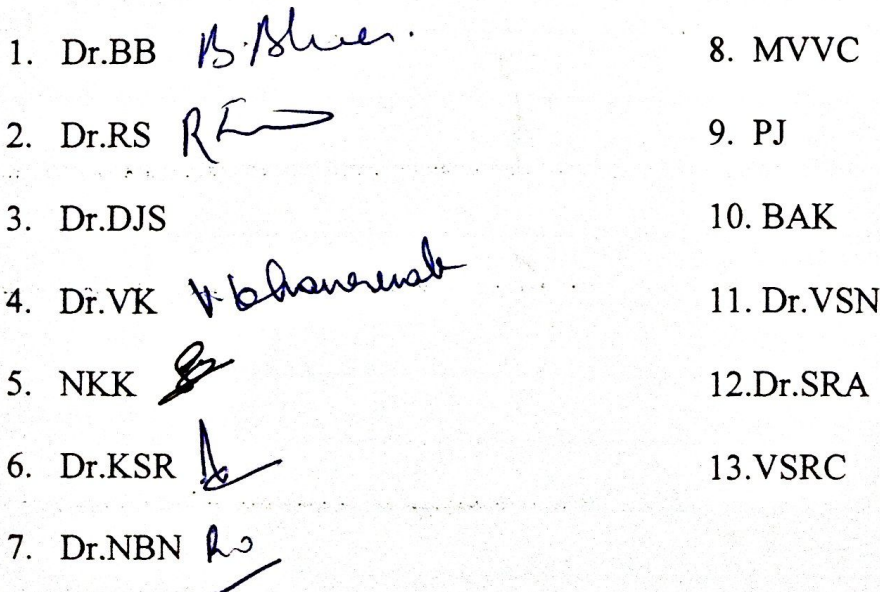 1. Dr.BB
2. Dr.RS
3. Dr.DJS
4. Dr.VK
5. NKK
6. Dr.KSR
7. Dr.NBN
8. MVVC
9. PJ
10. BAK
11. Dr.VSN
12.Dr.SRA
13.VSRC